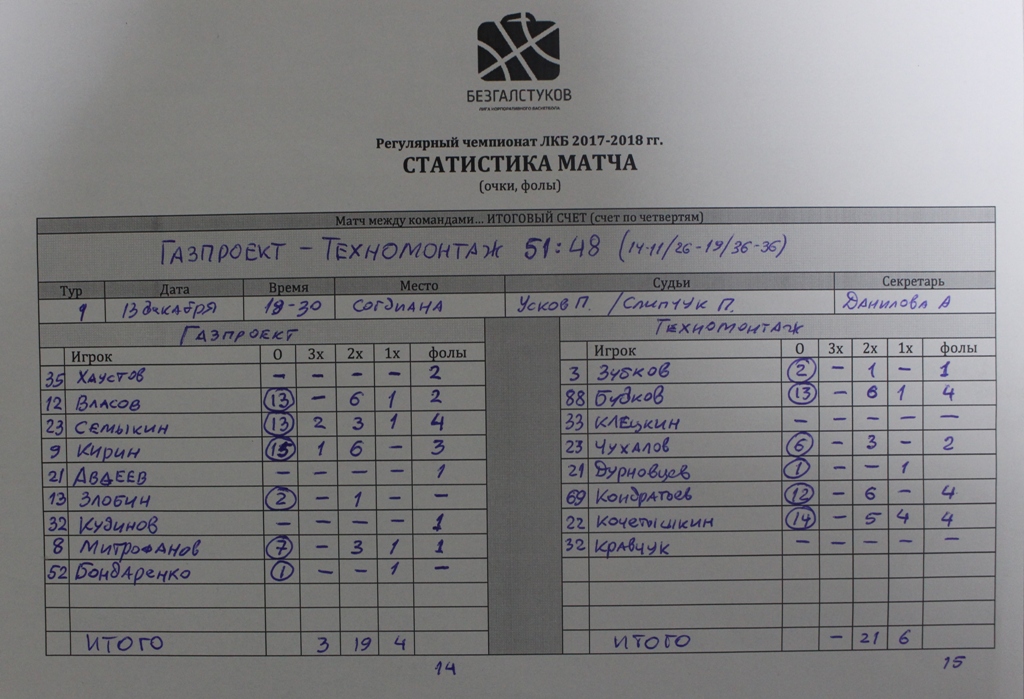 БЕЗГАЛСТУКОВ
ЛИГА КОРПОРАТИВНОГО БАСКЕТБОЛА
Регулярный чемпионат ЛКБ 2017-2018 гг.
СТАТИСТИКА МАТЧА
(очки, фолы)
Матч между командами... ИТОГОВЫЙ СЧЕТ (счет по четвертям)
ГАЗПРОЕКТ – ТЕХНОМОНТАЖ 51:48 (14-11/26-19/36-36)
Тур Дата Время Место Судьи Секретарь
9 13 декабря 19-30 СОГДИАНА УСКОВ П. /СЛИПЧУК П. ДАНИЛОВА А
ГАЗПРОЕКТ ТЕХНОМОНТАЖ
Игрок О 3х 2х 1х фолы Игрок О 3х 2х 1х фолы
35 ХАУСТОВ – – – – 2 3 ЗУБКОВ 2 – 1 – 1
12 ВЛАСОВ 13 – 6 1 2 88 БУДКОВ 13 – 6 1 4
23 СЕМЫКИН 13 2 3 1 4 33 КЛЕЦКИН – – – – –
9 КИРИН 15 1 6 – 3 23 ЧУХАЛОВ 6 – 3 – 2
21 АВДЕЕВ – – – – 1 21 ДУРНОВЦЕВ 1 – – 1
13 ЗЛОБИН 2 – 1 – – 69 КОНДРАТЬЕВ 12 – 6 – 4
32 КУДИНОВ – – – – 1 22 КОЧЕТЫШКИН 14 – 5 4 4
8 МИТРОФАНОВ 7 – 3 1 1 32 КРАВЧУК – – – – –
52 БОНДАРЕНКО 1 – – 1 –
ИТОГО 3 19 4 ИТОГО – 21 6
14 15